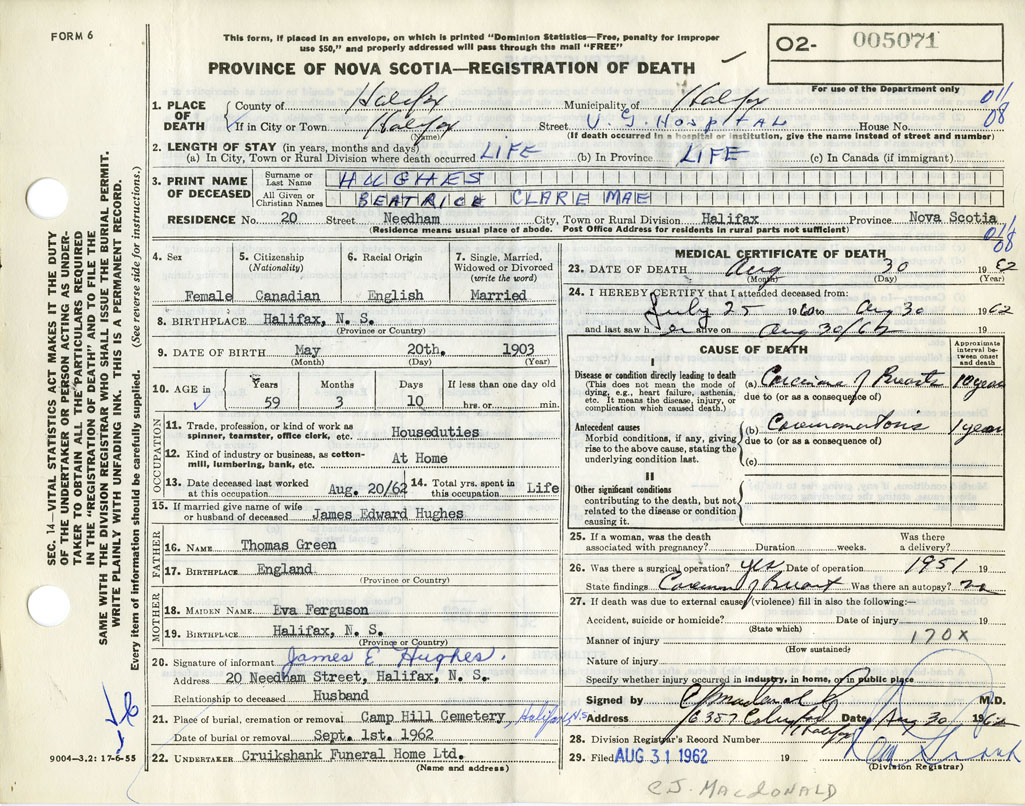 FORM 6
This form, if placed in an envelope, on which is printed "Dominion Statistics—Free, penalty for improper
use $50," and properly addressed will pass through the mail "FREE"
PROVINCE OF NOVA SCOTIA—REGISTRATION OF DEATH
O2- 005071
For use of the Department only
01/08
1. PLACE OF DEATH
County of Halifax Municipality of Halifax
If in City or Town Halifax Street V. G. Hospital House No.
(Name) (If death occurred in a hospital or institution, give the name instead of street and number)
2. LENGTH OF STAY (in years, months and days)
(a) In City, Town or Rural Division where death occurred LIFE (b) In Province LIFE (c) In Canada (if immigrant)
3. PRINT NAME OF DECEASED
Surname or Last Name HUGHES
All Given or Christian Names BEATRICE CLARE MAE
RESIDENCE No. 20 Street Needham City, Town or Rural Division Halifax Province Nova Scotia
(Residence means usual place of abode. Post Office Address for residents in rural parts not sufficient)
01/08
4. Sex
Female
5. Citizenship (Nationality)
Canadian
6. Racial Origin
English
7. Single, Married, Widowed or Divorced (write the word)
Married
8. BIRTHPLACE Halifax, N. S.
(Province or Country)
9. DATE OF BIRTH May 20th. 1903
(Month) (Day) (Year)
10. AGE in Years Months Days If less than one day old
59 3 10 hrs. or min.
OCCUPATION
11. Trade, profession, or kind of work as spinner, teamster, office clerk, etc. Houseduties
12. Kind of industry or business, as cotton-mill, lumbering, bank, etc. At Home
13. Date deceased last worked at this occupation Aug. 20/62
14. Total yrs. spent in this occupation. Life
15. If married give name of wife or husband of deceased James Edward Hughes
FATHER
16. NAME Thomas Green
17. BIRTHPLACE England
(Province or Country)
MOTHER
18. MAIDEN NAME. Eva Ferguson
19. BIRTHPLACE Halifax, N. S.
(Province or Country)
20. Signature of informant James E. Hughes.
Address 20 Needham Street, Halifax, N. S.
Relationship to deceased Husband
21. Place of burial, cremation or removal Camp Hill Cemetery Halifax N.S.
Date of burial or removal Sept. 1st. 1962
22. UNDERTAKER Cruikshank Funeral Home Ltd.
(Name and address)
MEDICAL CERTIFICATE OF DEATH
23. DATE OF DEATH Aug 30 1962
(Month) (Day) (Year)
24. I HEREBY CERTIFY that I attended deceased from:
July 25 1960 to Aug 30 1962
and last saw h er alive on Aug 30/62 19
CAUSE OF DEATH
Approximate interval between onset and death
I
Disease or condition directly leading to death
(This does not mean the mode of dying, e.g., heart failure, asthenia, etc. It means the disease, injury, or complication which caused death.)
(a) Carcinoma of Breasts 10 years
due to (or as a consequence of)
Antecedent causes
Morbid conditions, if any, giving rise to the above cause, stating the underlying condition last.
(b) 1 year
due to (or as a consequence of)
(c)
II
Other significant conditions
contributing to the death, but not related to the disease or condition causing it.
25. If a woman, was the death associated with pregnancy? Duration weeks. Was there a delivery?
26. Was there a surgical operation? yes Date of operation 1951 19
State findings Carcinoma of Breast Was there an autopsy? no
27. If death was due to external cause (violence) fill in also the following:—
Accident, suicide or homicide? Date of injury 19
(State which)
Manner of injury 170X
(How sustained)
Nature of injury
Specify whether injury occurred in industry, in home, or in public place
Signed by M.D.
Address 6357 Halifax Date Aug 30 1962
28. Division Registrar's Record Number
29. Filed AUG 31 1962 19
(Division Registrar)
C.J. MACDONALD
SEC. 14—VITAL STATISTICS ACT MAKES IT THE DUTY
OF THE UNDERTAKER OR PERSON ACTING AS UNDER-
TAKER TO OBTAIN ALL THE PARTICULARS REQUIRED
IN THE "REGISTRATION OF DEATH" AND TO FILE THE
SAME WITH THE DIVISION REGISTRAR WHO SHALL ISSUE THE BURIAL PERMIT.
WRITE PLAINLY WITH UNFADING INK. THIS IS A PERMANENT RECORD.
Every item of information should be carefully supplied. (See reverse side for instructions.)
9004—3,2: 17-6-55